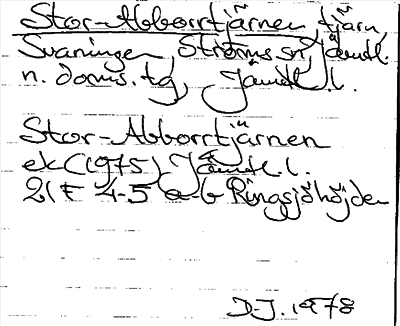 Stor-Abborrtjärnen, tjärn,
Svaningen, Ströms sn, Jämtl.
n. doms. tg, Jämtl. l.
Stor-Abborrtjärnen
ek (1975) Jämtl. l.
21 F 4-5 a-b Ringsjöhöjden
D.J. 1978